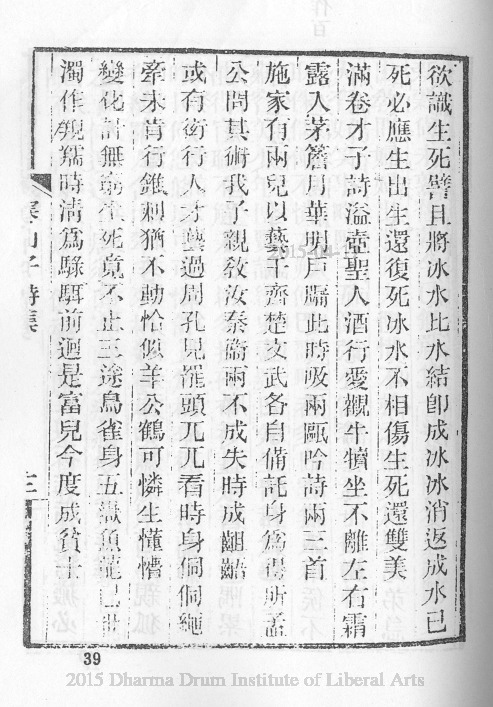 欲識生死譬且將冰水比水結即成冰冰消返成水已
死必應生出生還復死冰水不相傷生死還雙美
滿卷才子詩溢壺聖人酒行愛觀牛犢坐不離左右霜
露入茅簷月華明戶牖此時吸兩甌吟詩兩三首
施家有兩兒以藝干齊楚文武各自備託身為得所孟
公問其術我子親教汝秦衛兩不成失時成齟齬
或有衒行人才藝過周孔見罷頭兀兀看時身侗侗繩
牽未肯行錐刺猶不動恰似羊公鶴可憐生懵懵
變化計無窮生死竟不止三途鳥雀身五嶽魚龍已世
濁作㲝羺時清為騄駬前迴是富兒今度成貧士
寒山子詩集
三
39
2015 Dharma Drum Institute of Liberal Arts